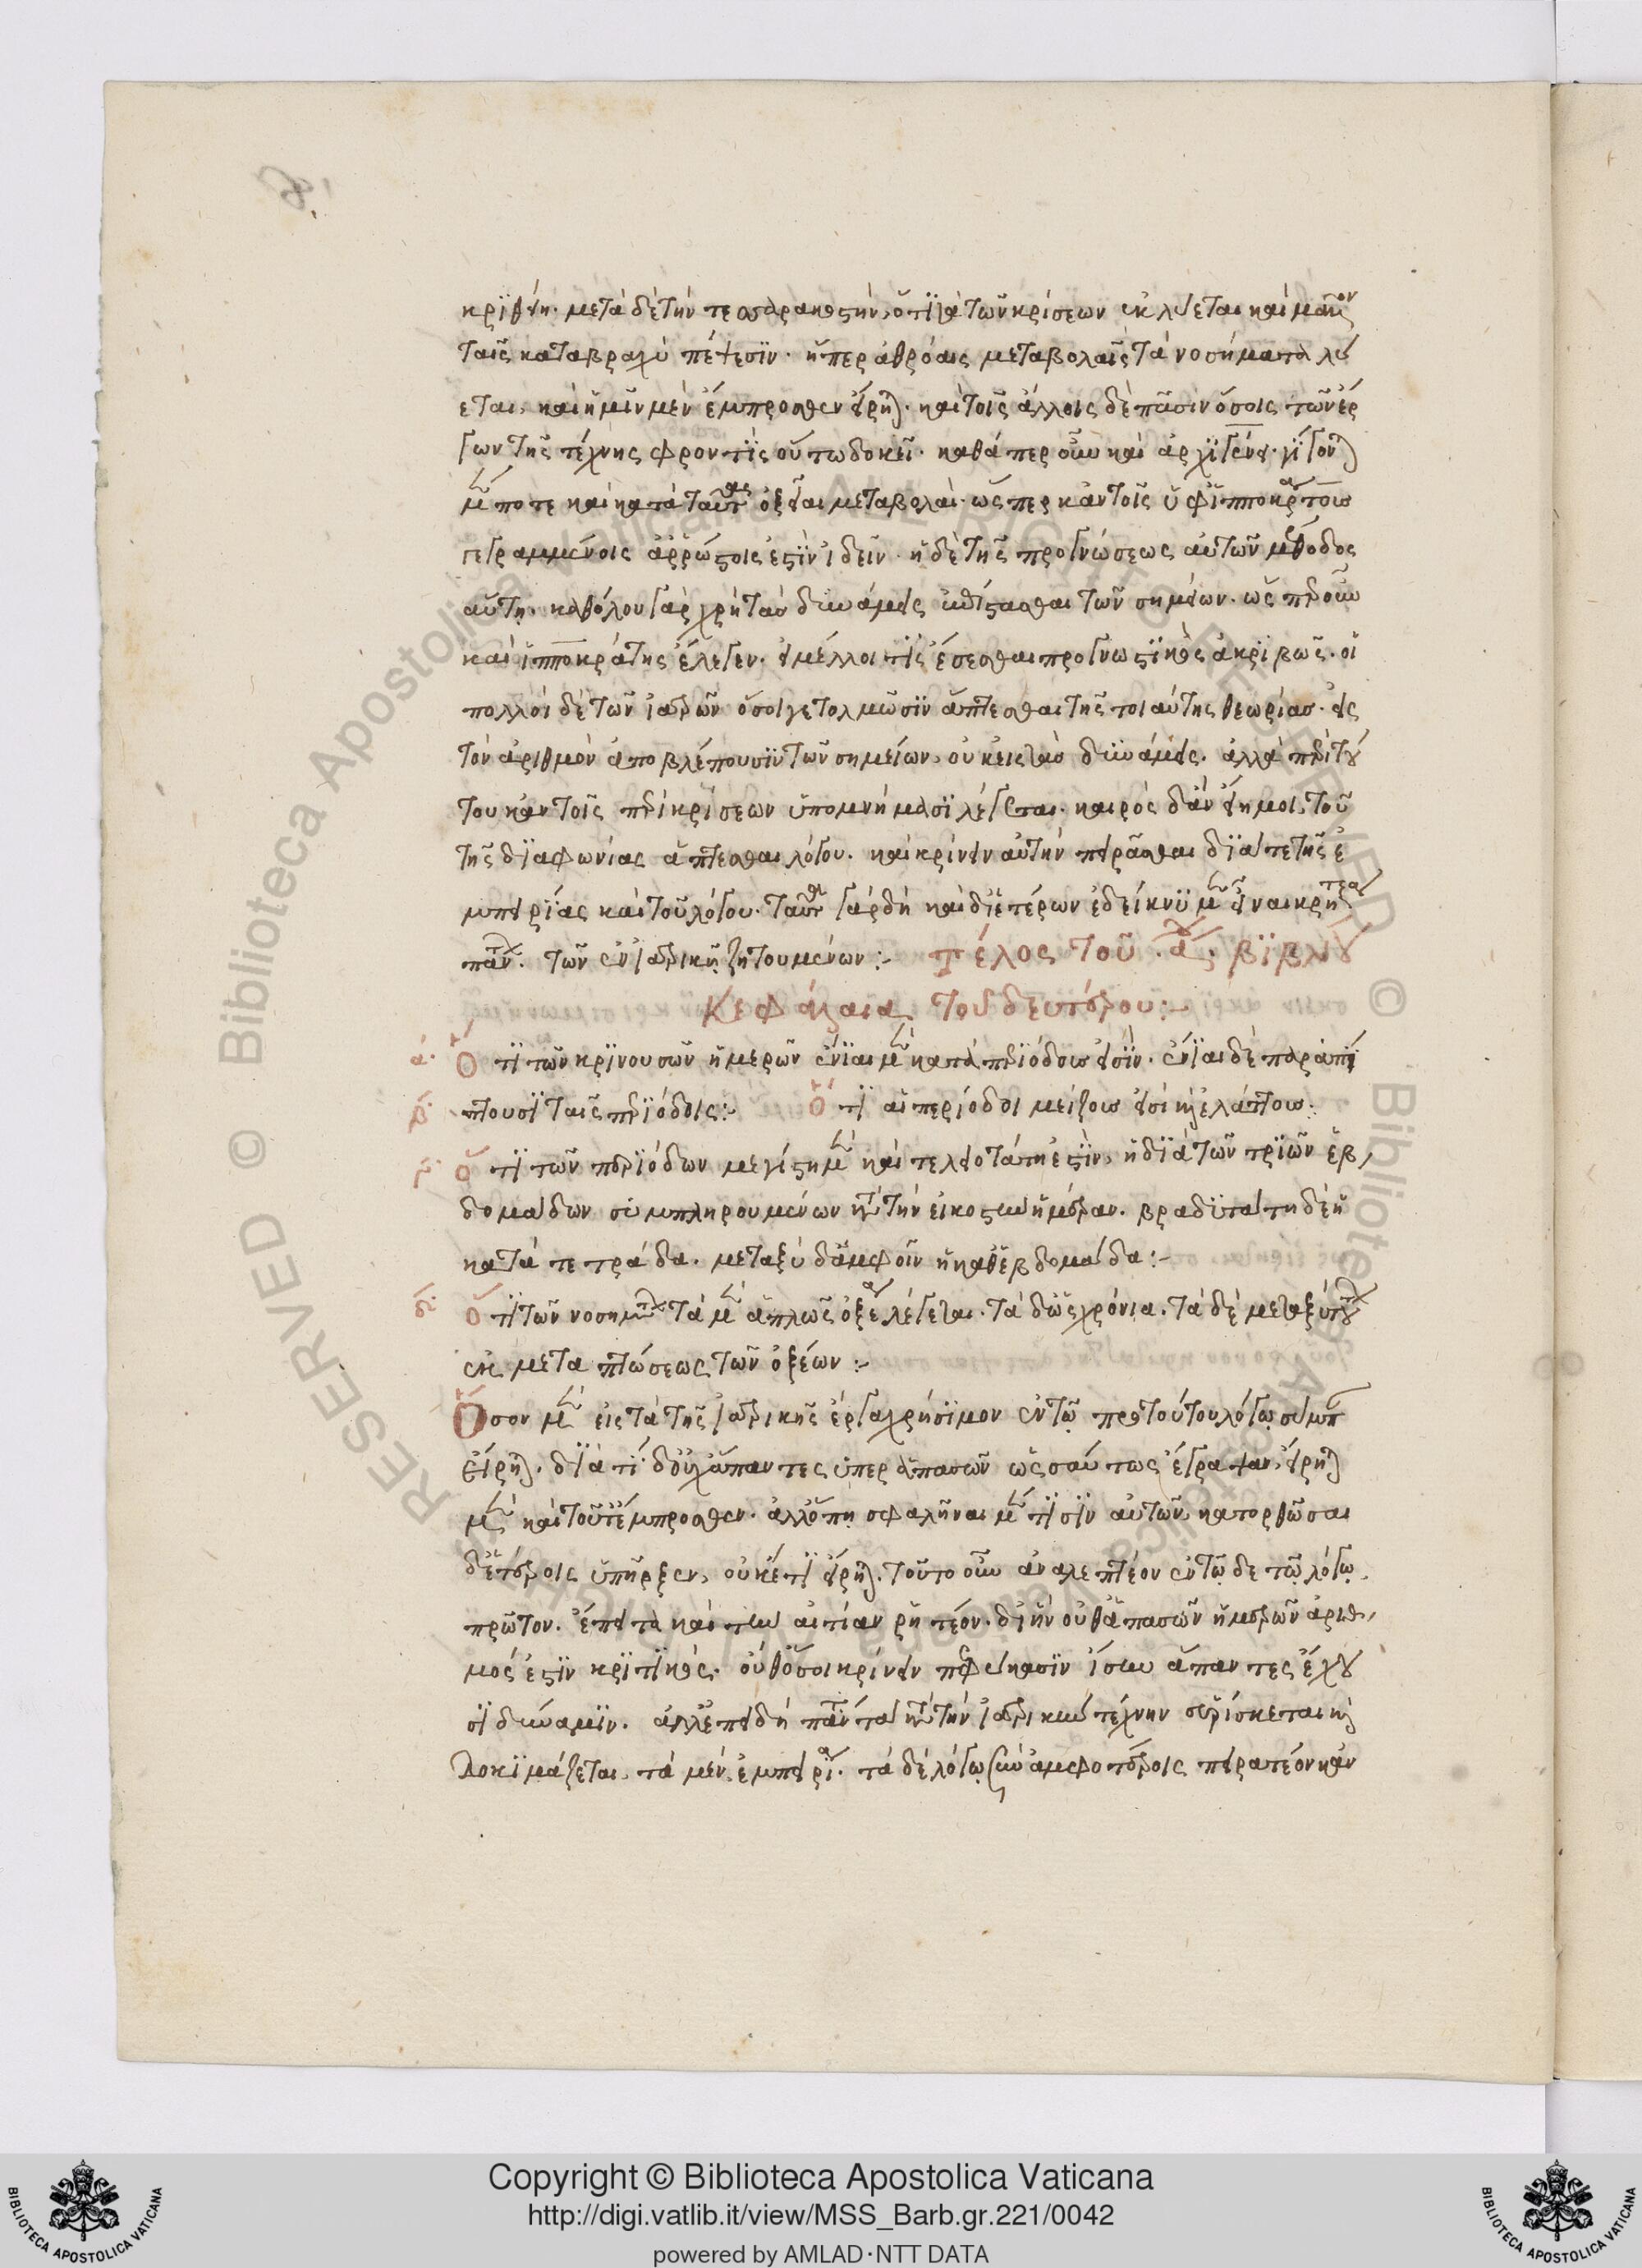 κρϊθείη. μετὰ δὲ τὴν τεσσαρακοστὴν, ὅτϊ τὰ τῶν κρίσεων ἐκλύεται καὶ μᾶλλον
ταῖς κατα βραχὺ πέψεσϊν. ἤπερ ἀθρόαις μεταβολαῖς τὰ νοσήματα λύ
εται, καὶ ἡμῖν μὲν ἔμπροσθεν εἴρηται. καὶ τοῖς ἄλλοις δὲ πᾶσιν ὅσοις τῶν ἔρ
γων τῆς τέχνης φροντὶς οὕτω δοκεῖ. καθάπερ οὖν καὶ ἀρχϊγένει. γίγονται
μέν ποτε καὶ κατὰ ταύτας ὀξεῖαι μεταβολαί. ὥς περ κἀν τοῖς ὑφ ἱπποκράτους
γεγραμμένοις ἀῤῥώστοις ἐστὶν ἰδεῖν. ἡ δὲ τῆς προγνώσεως αὐτῶν μέθοδος
αὕτη. καθόλου γὰρ χρὴ τὰς δυνάμεις ἐκλογίζεσθαι τῶν σημείων. ὥς που
καὶ ἱπποκράτης ἔλεγεν. εἰ μέλλοι τις ἔσεσθαι προγνωστϊκὸς ἀκρϊβῶς. οἱ
πολλοὶ δὲ τῶν ἰατρῶν ὅσοι γε τολμῶσϊν ἅπτεσθαι τῆς τοιαύτης θεωρίας. εἰς
τὸν ἀριθμὸν ἀποβλέπουσϊν τῶν σημείων, οὐκ εἰς τὰς δυνάμεις. ἀλλὰ περὶ τού
του κἀν τοῖς περὶ κρίσεων ὑπομνήμασϊ λέγεται. καιρὸς δ' ἂν εἴη μοι, τοῦ
τῆς δϊαφωνίας ἅπτεσθαι λόγου. καὶ κρίνειν αὐτὴν πειρᾶσθαι δϊά τε τῆς ἐ
μπειρΐας καὶ τοῦ λόγου. ταῦτα γὰρ δὴ καὶ δϊ ἑτέρων ἐδείκνϋμεν εἶναι κρητέα
πάντων. τῶν ἐν ἰατρικῇ ζητουμένων :- τέλος τοῦ .α. βϊβλίου
Κεφάλαια τοῦ δευτέρου :-
α. Ὅτϊ τῶν κρϊνουσῶν ἡμερῶν ἔνϊαι μὲν κατὰ περϊόδους εἰσϊν. ἔνϊαι δὲ παραπΐ
β. πτουσϊ ταῖς περϊόδοις :- Ὅτϊ αἱ περίοδοι μείζους εἰσὶ καὶ ἐλάττους :-
γ. Ὅτϊ τῶν περϊόδων μεγίστη μὲν καὶ τελειοτάτη ἐστὶν, ἡ δϊὰ τῶν τρϊῶν ἑβ
δομάδων συμπληρουμένων κατὰ τὴν εἰκοστὴν ἡμέραν. βραδϋτάτη δὲ ἡ
κατὰ τετράδα. μεταξὺ δ' ἀμφοῖν ἡ καθ' ἑβδομάδα :-
δ. Ὅτϊ τῶν νοσημάτων τὰ μὲν ἁπλῶς ὀξέα λέγεται. τὰ δ' ὡς χρόνια. τὰ δὲ μεταξὺ τούτων
ἐκ μεταπτώσεως τῶν ὀξέων :-
Ὅσον μὲν εἰς τὰ τῆς ἰατρικῆς ἔργα χρήσϊμον ἐν τῷ πρὸ τούτου λόγῳ σύμπαν
εἴρηται. δϊὰ τί δ' οὐχ ἅπαντες ὑπὲρ ἁπασῶν ὡσαύτως ἔγραψαν, εἴρηται
μὲν καὶ τοῦτ' ἔμπροσθεν. ἀλλ' ὅπῃ σφαλῆναι μέν τϊσϊν αὐτῶν, κατορθῶσαι
δ' ἑτέροις ὑπῆρξεν, οὐκέτϊ εἴρηται. τοῦτο οὖν ἀναλεπτέον ἐν τῷδε τῷ λόγῳ
πρῶτον. ἔπειτα καὶ τὴν αἰτίαν ῥητέον. δι' ἣν οὐθ' ἁπασῶν ἡμερῶν ἀριθ
μός ἐστϊν κρϊτϊκὸς. οὐθ' ὅσοι κρίνειν πεφύκασϊν ἴσην ἅπαντες ἔχου
σϊ δύναμϊν. ἀλλ' ἐπειδὴ πάντα κατὰ τὴν ἰατρικὴν τέχνην εὑρίσκεται καὶ
δοκϊμάζεται, τὰ μὲν ἐμπειρίᾳ. τὰ δὲ λόγῳ, σὺν ἀμφοτέροις πειρατέον κἀν
Copyright © Biblioteca Apostolica Vaticana
http://digi.vatlib.it/view/MSS_Barb.gr.221/0042
powered by AMLAD·NTT DATA